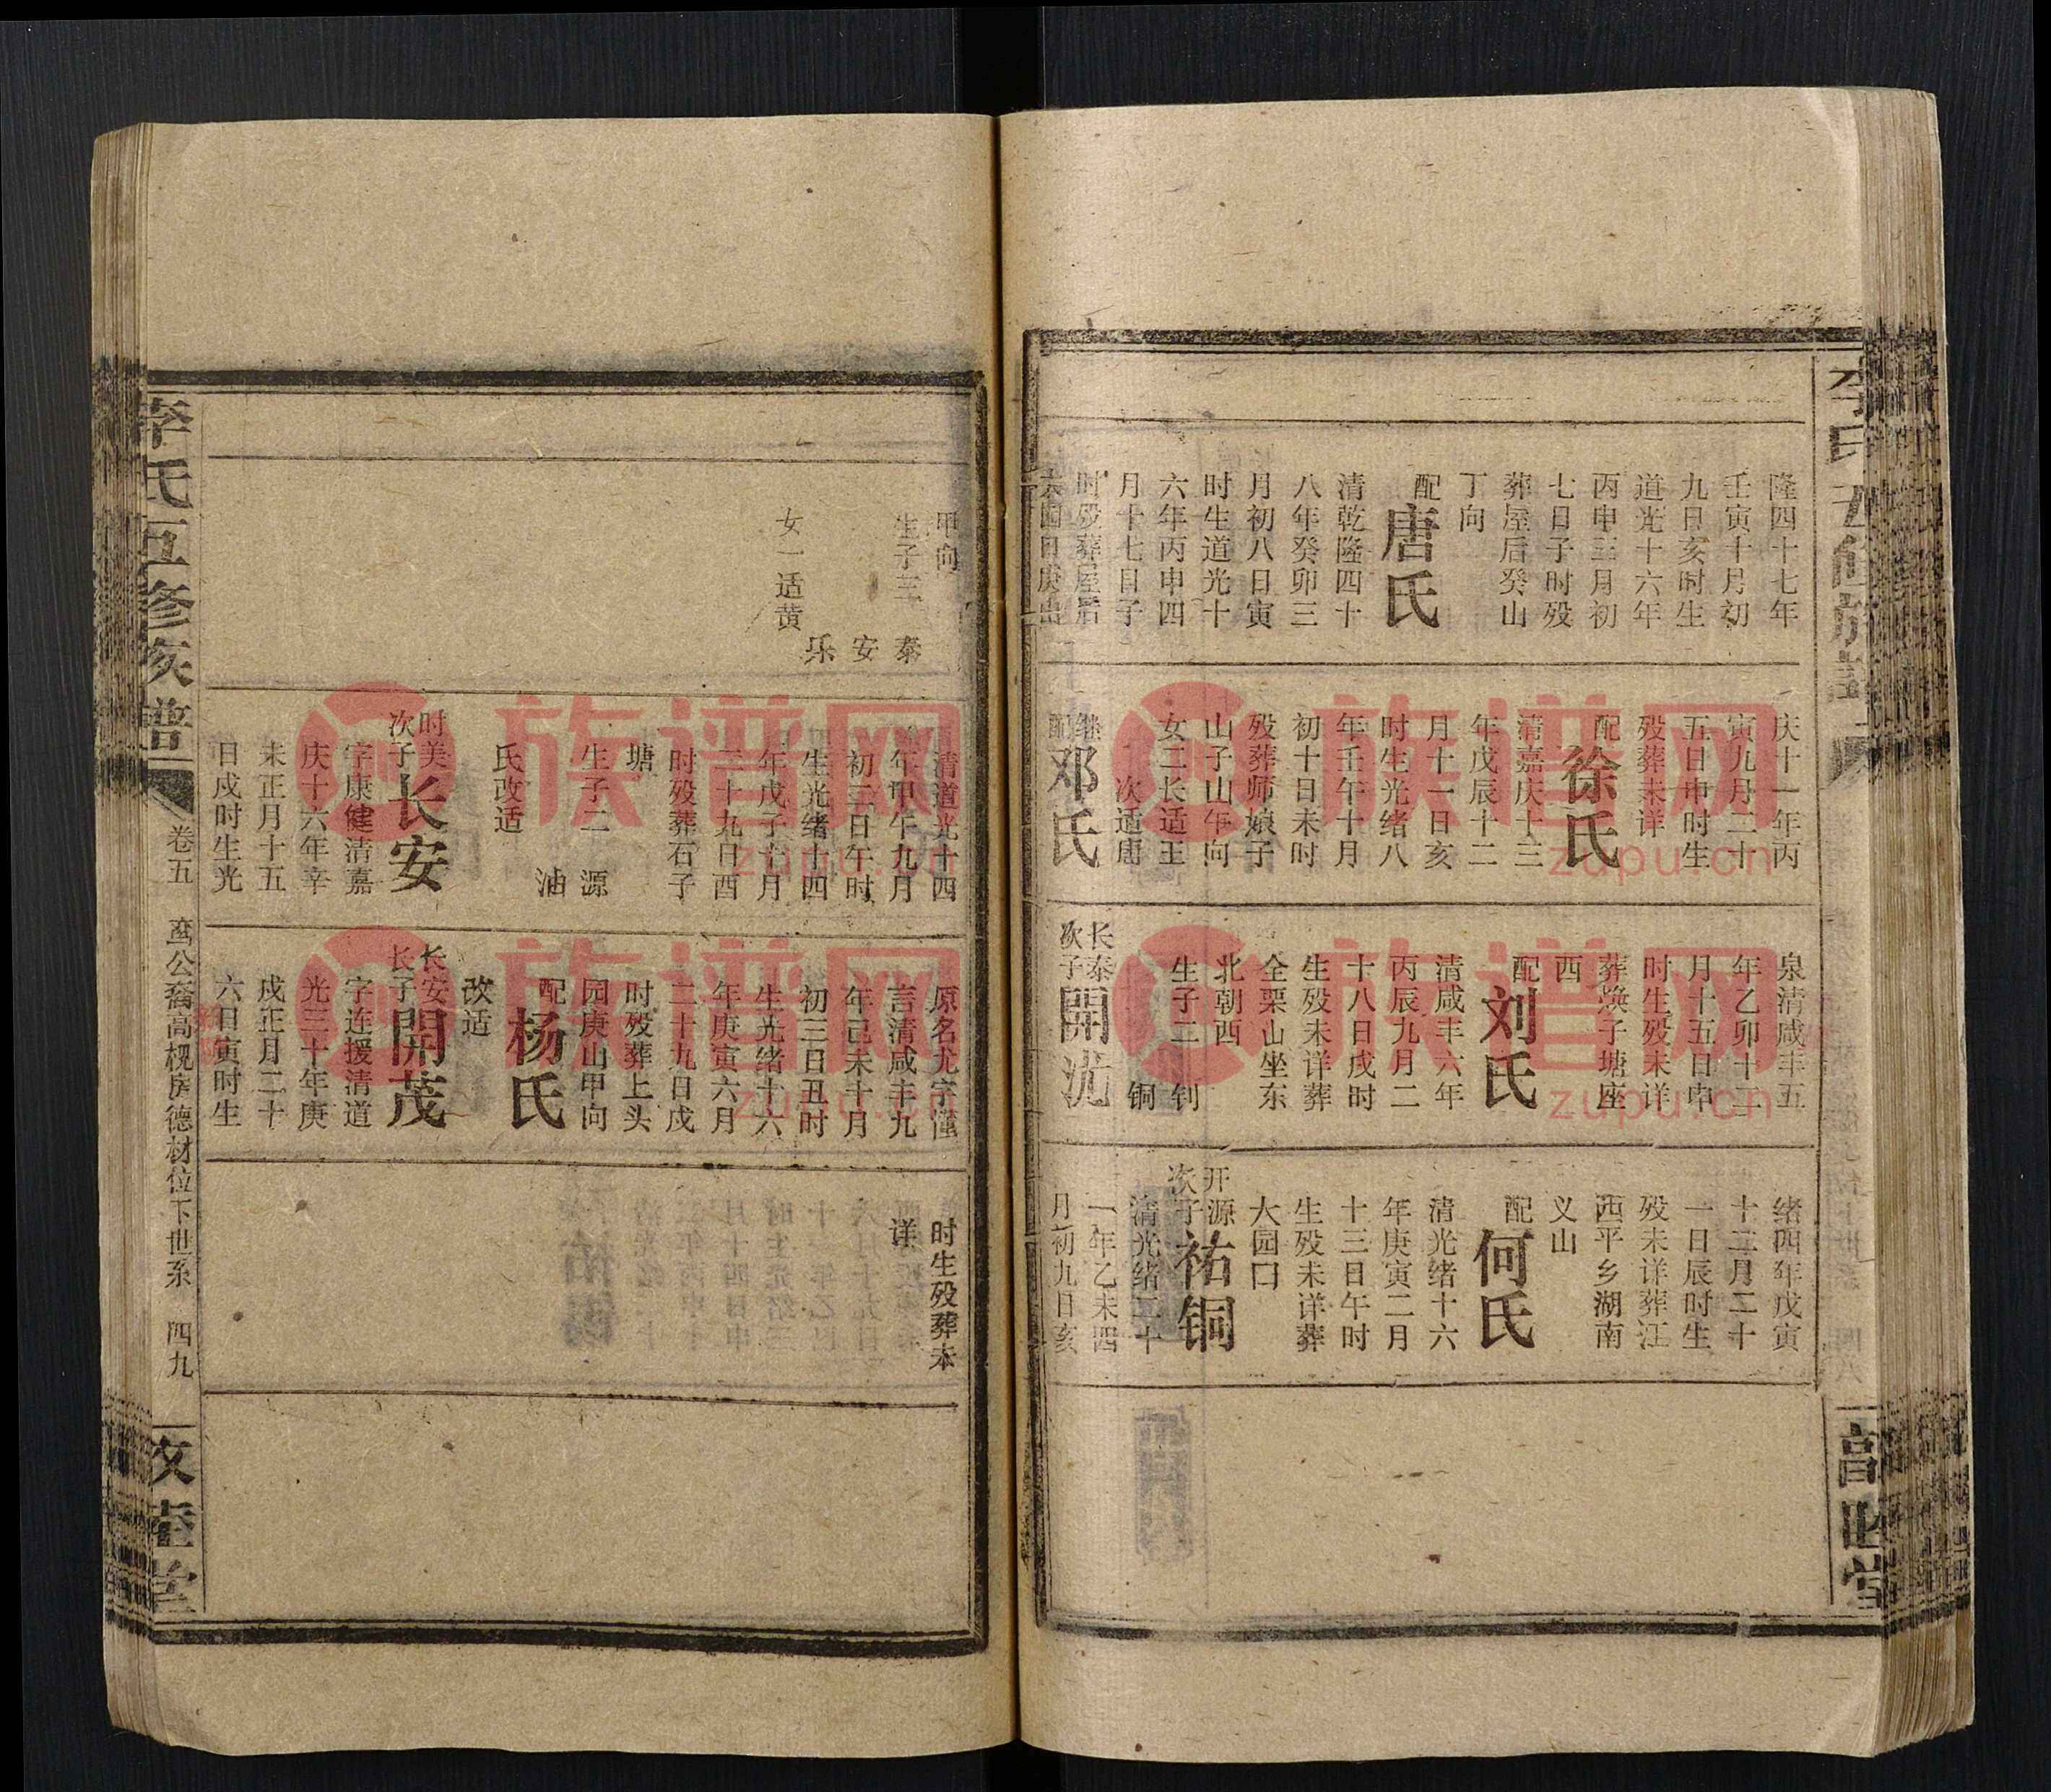 李氏五修族譜
敦睦堂
隆四十七年
壬寅十月初
九日亥时生
道光十六年
丙申三月初
七日子时殁
葬屋后癸山
丁向
配唐氏
清乾隆四十
八年癸卯三
月初八日寅
时生道光十
六年丙申四
月十七日子
时殁葬屋后
庆十一年丙
寅九月二十
五日申时生
殁葬未详
配徐氏
清嘉庆十三
年戊辰十二
月十一日亥
时生光绪八
年壬午十月
初十日未时
殁葬师娘子
山子山午向
女二长适王
次适唐
继配邓氏
泉清咸丰五
年乙卯十二
月十五日申
时生殁未详
葬焕子塘座
西
配刘氏
清咸丰六年
丙辰九月二
十八日戌时
生殁未详葬
全栗山坐东
北朝酉
生子二
钊
铜
长泰次子開沇
绪四年戊寅
十二月二十
一日辰时生
殁未详葬江
西平乡湖南
义山
配何氏
清光绪十六
年庚寅二月
十三日午时
生殁未详葬
大园口
开源次子祐铜
清光绪二十
一年乙未四
月初九日亥
甲向
生子三
泰
安
乐
女一适黄
清道光十四
年甲午九月
初二日午时
生光绪十四
年戊子七月
二十九日酉
时殁葬石子
塘
生子二
源
油
氏改适
时美次子长安
字康健清嘉
庆十六年辛
未正月十五
日戌时生光
原名尤字僅
言清咸丰九
年己未十月
初三日丑时
生光绪十六
年庚寅六月
二十九日戌
时殁葬上头
园庚山甲向
配杨氏
改适
长安长子開茂
字连援清道
光三十年庚
戌正月二十
六日寅时生
时生殁葬未
详
李氏五修族譜
卷五
鸾公裔高枧房德材位下世系
四九
敦睦堂
族谱网
zupu.cn
族谱网
zupu.cn
族谱网
zupu.cn
族谱网
zupu.cn